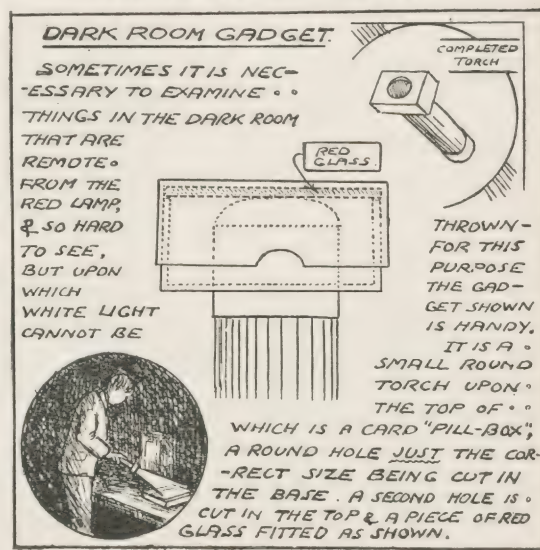 DARK ROOM GADGET.
SOMETIMES IT IS NEC-
-ESSARY TO EXAMINE
THINGS IN THE DARK ROOM
THAT ARE
REMOTE
FROM THE
RED LAMP,
& SO HARD
TO SEE,
BUT UPON
WHICH
WHITE LIGHT
CANNOT BE
THROWN-
FOR THIS
PURPOSE
THE GAD-
GET SHOWN
IS HANDY.
IT IS A
SMALL ROUND
TORCH UPON
THE TOP OF
WHICH IS A CARD "PILL-BOX",
A ROUND HOLE JUST THE COR-
-RECT SIZE BEING CUT IN
THE BASE. A SECOND HOLE IS
CUT IN THE TOP & A PIECE OF RED
GLASS FITTED AS SHOWN.
RED
GLASS.
COMPLETED
TORCH